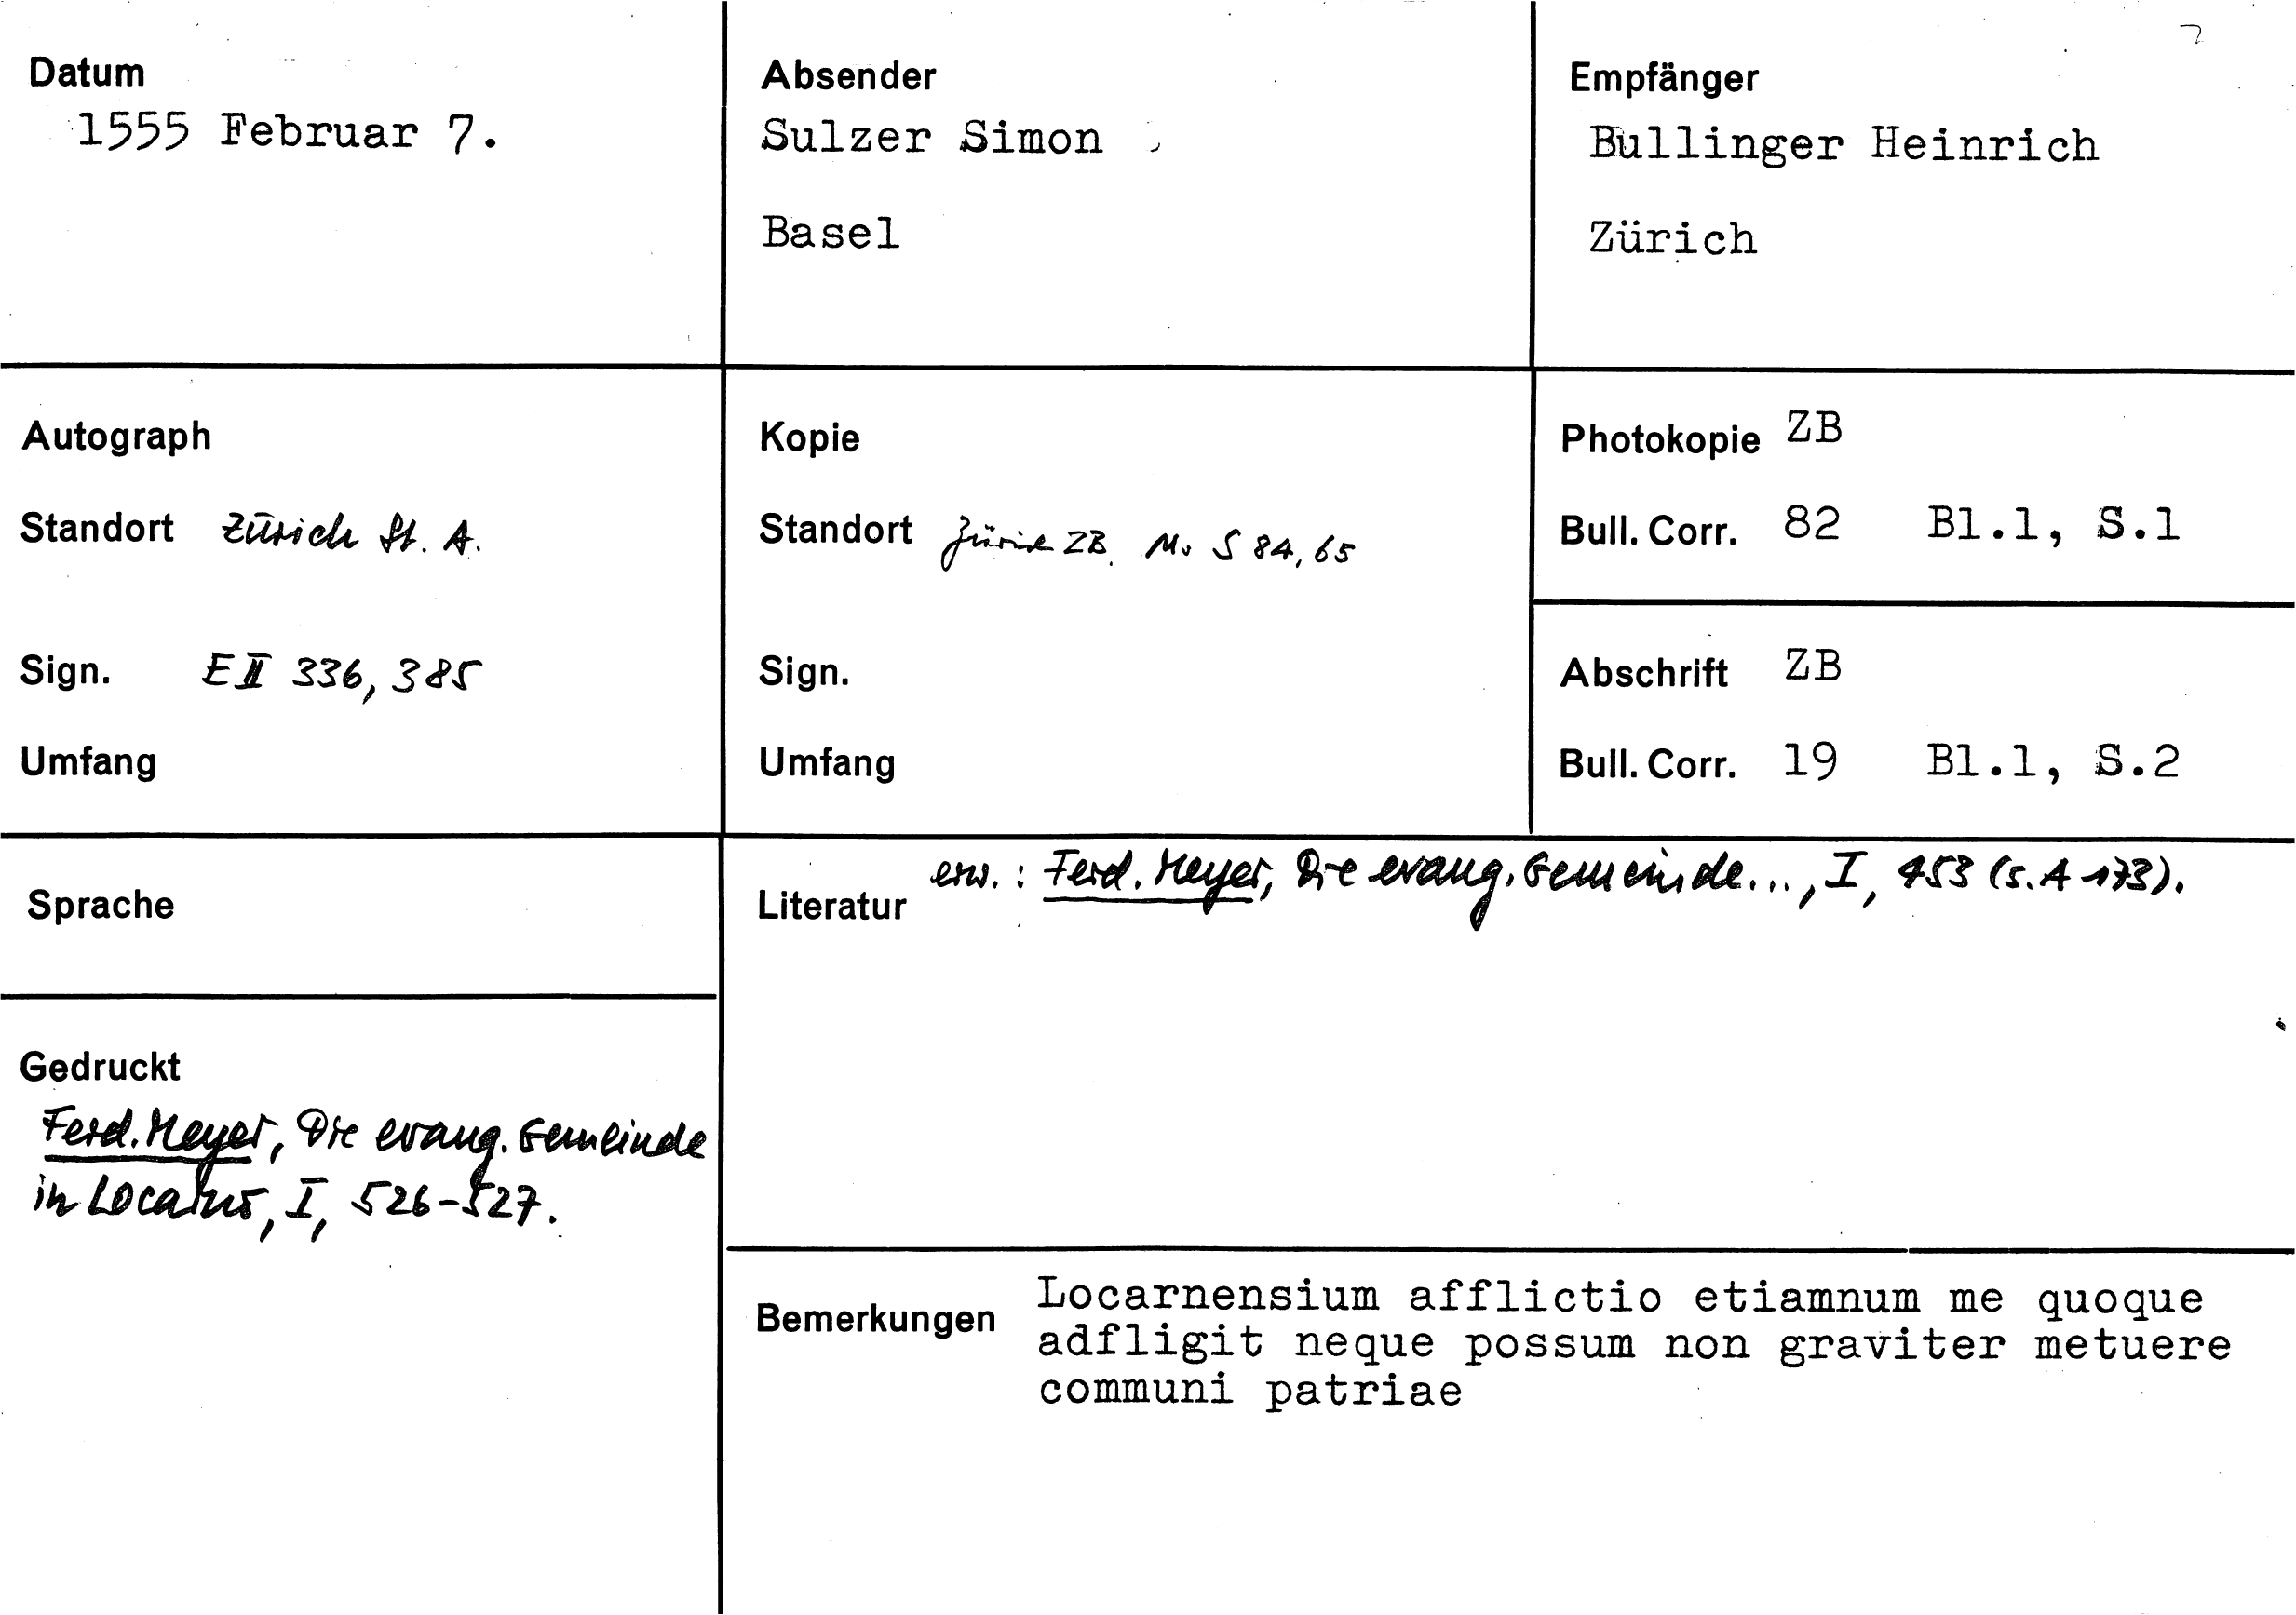 Datum
1555 Februar 7.
Absender
Sulzer Simon
Basel
Empfänger
Bullinger Heinrich
Zürich
Autograph
Standort Zürich St. A.
Sign. E II 336, 385
Umfang
Kopie
Standort Zürich ZB. Ms S 84, 65
Sign.
Umfang
Photokopie ZB
Bull. Corr. 82 Bl.1, S.1
Abschrift ZB
Bull. Corr. 19 Bl.1, S.2
Sprache
Literatur erw.: Ferd. Meyer, Die evang. Gemeinde..., I, 453 (s. A 173).
Gedruckt
Ferd. Meyer, Die evang. Gemeinde
in Locarno, I, 526-527.
Bemerkungen
Locarnensium afflictio etiamnum me quoque
adfligit neque possum non graviter metuere
communi patriae